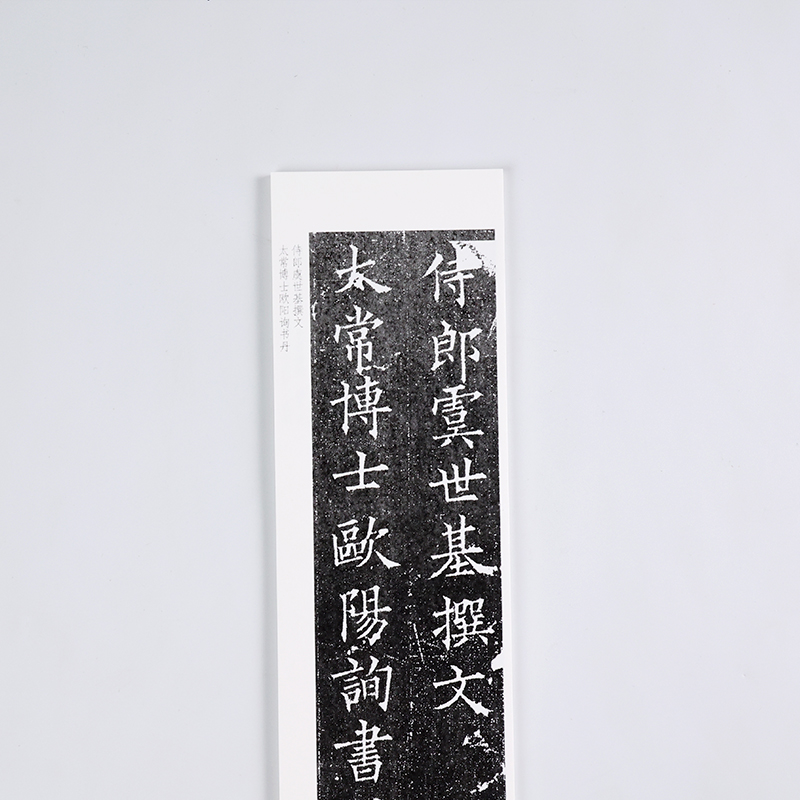 侍郎虞世基撰文
太常博士歐陽詢書
侍郎虞世基撰文
太常博士欧阳询书丹